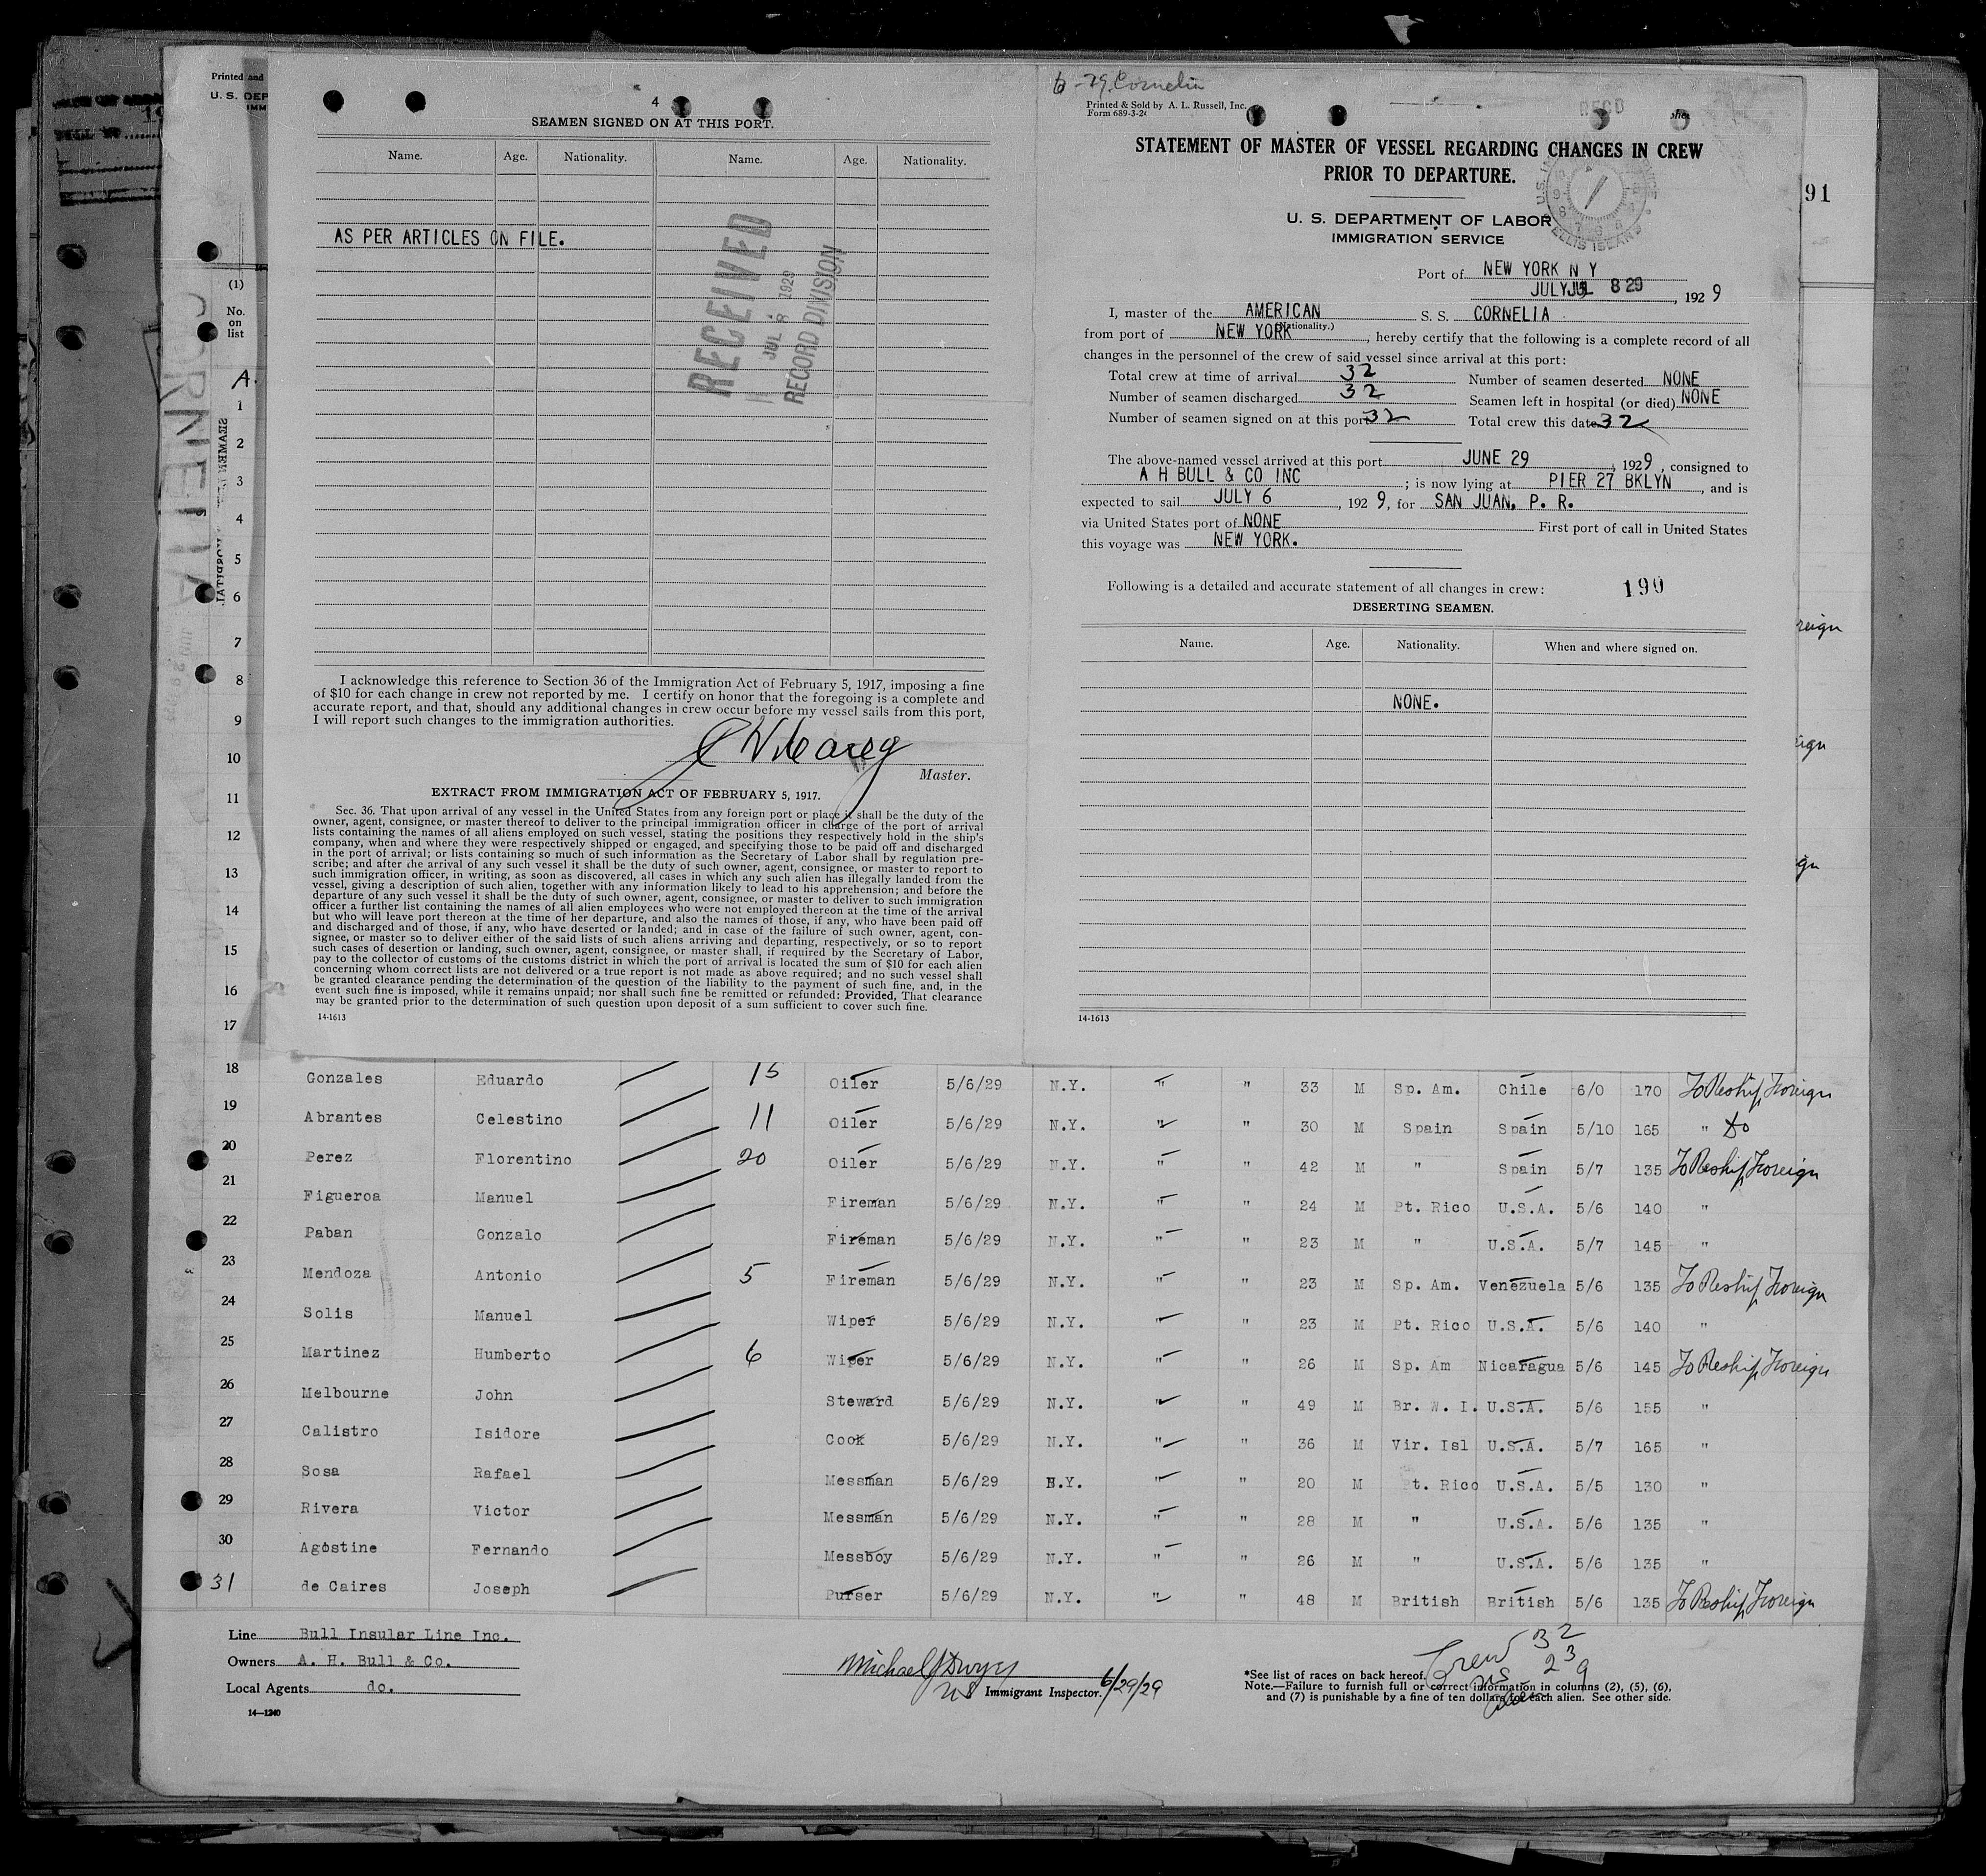 Printed and
U. S. DEP
IMM
4
SEAMEN SIGNED ON AT THIS PORT.
Name. Age. Nationality. Name. Age. Nationality.
AS PER ARTICLES ON FILE.
RECEIVED
JUL 8 1929
RECORD DIVISION
I acknowledge this reference to Section 36 of the Immigration Act of February 5, 1917, imposing a fine
of $10 for each change in crew not reported by me. I certify on honor that the foregoing is a complete and
accurate report, and that, should any additional changes in crew occur before my vessel sails from this port,
I will report such changes to the immigration authorities.
Master.
EXTRACT FROM IMMIGRATION ACT OF FEBRUARY 5, 1917.
Sec. 36. That upon arrival of any vessel in the United States from any foreign port or place it shall be the duty of the
owner, agent, consignee, or master thereof to deliver to the principal immigration officer in charge of the port of arrival
lists containing the names of all aliens employed on such vessel, stating the positions they respectively hold in the ship's
company, when and where they were respectively shipped or engaged, and specifying those to be paid off and discharged
in the port of arrival; or lists containing so much of such information as the Secretary of Labor shall by regulation pre-
scribe; and after the arrival of any such vessel it shall be the duty of such owner, agent, consignee, or master to report to
such immigration officer, in writing, as soon as discovered, all cases in which any such alien has illegally landed from the
vessel, giving a description of such alien, together with any information likely to lead to his apprehension; and before the
departure of any such vessel it shall be the duty of such owner, agent, consignee, or master to deliver to such immigration
officer a further list containing the names of all alien employees who were not employed thereon at the time of the arrival
but who will leave port thereon at the time of her departure, and also the names of those, if any, who have been paid off
and discharged and of those, if any, who have deserted or landed; and in case of the failure of such owner, agent, con-
signee, or master so to deliver either of the said lists of such aliens arriving and departing, respectively, or so to report
such cases of desertion or landing, such owner, agent, consignee, or master shall, if required by the Secretary of Labor,
pay to the collector of customs of the customs district in which the port of arrival is located the sum of $10 for each alien
concerning whom correct lists are not delivered or a true report is not made as above required; and no such vessel shall
be granted clearance pending the determination of the question of the liability to the payment of such fine, and, in the
event such fine is imposed, while it remains unpaid; nor shall such fine be remitted or refunded: Provided, That clearance
may be granted prior to the determination of such question upon deposit of a sum sufficient to cover such fine.
14-1613
Cornelia
Printed & Sold by A. L. Russell, Inc.
Form 689-3-2
REC'D
STATEMENT OF MASTER OF VESSEL REGARDING CHANGES IN CREW
PRIOR TO DEPARTURE.
U. S. DEPARTMENT OF LABOR
IMMIGRATION SERVICE
ELLIS ISLAND
91
Port of NEW YORK N Y
JULY JUL 8 29, 1929
I, master of the AMERICAN S. S. CORNELIA
(Nationality.)
from port of NEW YORK, hereby certify that the following is a complete record of all
changes in the personnel of the crew of said vessel since arrival at this port:
Total crew at time of arrival 32 Number of seamen deserted NONE
Number of seamen discharged 32 Seamen left in hospital (or died) NONE
Number of seamen signed on at this port 32 Total crew this date 32
The above-named vessel arrived at this port JUNE 29, 1929, consigned to
A H BULL & CO INC; is now lying at PIER 27 BKLYN, and is
expected to sail JULY 6, 1929, for SAN JUAN, P. R.
via United States port of NONE First port of call in United States
this voyage was NEW YORK.
Following is a detailed and accurate statement of all changes in crew: 190
DESERTING SEAMEN.
Name. Age. Nationality. When and where signed on.
NONE.
14-1613
(1)
No.
on
list
CORNELIA
A.
1
2
3
4
5
6
7
8
9
10
11
12
13
14
15
16
17
18 Gonzales Eduardo 15 Oiler 5/6/29 N.Y. " " 33 M Sp. Am. Chile 6/0 170 To Reship Foreign
19 Abrantes Celestino 11 Oiler 5/6/29 N.Y. " " 30 M Spain Spain 5/10 165 " do
20 Perez Florentino 20 Oiler 5/6/29 N.Y. " " 42 M " Spain 5/7 135 To Reship Foreign
21 Figueroa Manuel Fireman 5/6/29 N.Y. " " 24 M Pt. Rico U.S.A. 5/6 140 "
22 Paban Gonzalo Fireman 5/6/29 N.Y. " " 23 M " U.S.A. 5/7 145 "
23 Mendoza Antonio 5 Fireman 5/6/29 N.Y. " " 23 M Sp. Am. Venezuela 5/6 135 To Reship Foreign
24 Solis Manuel Wiper 5/6/29 N.Y. " " 23 M Pt. Rico U.S.A. 5/6 140 "
25 Martinez Humberto 6 Wiper 5/6/29 N.Y. " " 26 M Sp. Am Nicaragua 5/6 145 To Reship Foreign
26 Melbourne John Steward 5/6/29 N.Y. " " 49 M Br. W. I. U.S.A. 5/6 155 "
27 Calistro Isidore Cook 5/6/29 N.Y. " " 36 M Vir. Isl U.S.A. 5/7 165 "
28 Sosa Rafael Messman 5/6/29 N.Y. " " 20 M Pt. Rico U.S.A. 5/5 130 "
29 Rivera Victor Messman 5/6/29 N.Y. " " 28 M " U.S.A. 5/6 135 "
30 Agostine Fernando Messboy 5/6/29 N.Y. " " 26 M " U.S.A. 5/6 135 "
31 de Caires Joseph Purser 5/6/29 N.Y. " " 48 M British British 5/6 135 To Reship Foreign
Line Bull Insular Line Inc.
Owners A. H. Bull & Co.
Local Agents do.
14—1240
Michael J Dwyer
US Immigrant Inspector. 6/29/29
Crew 32
US 23
Alien 9
*See list of races on back hereof.
Note.—Failure to furnish full or correct information in columns (2), (5), (6),
and (7) is punishable by a fine of ten dollars for each alien. See other side.